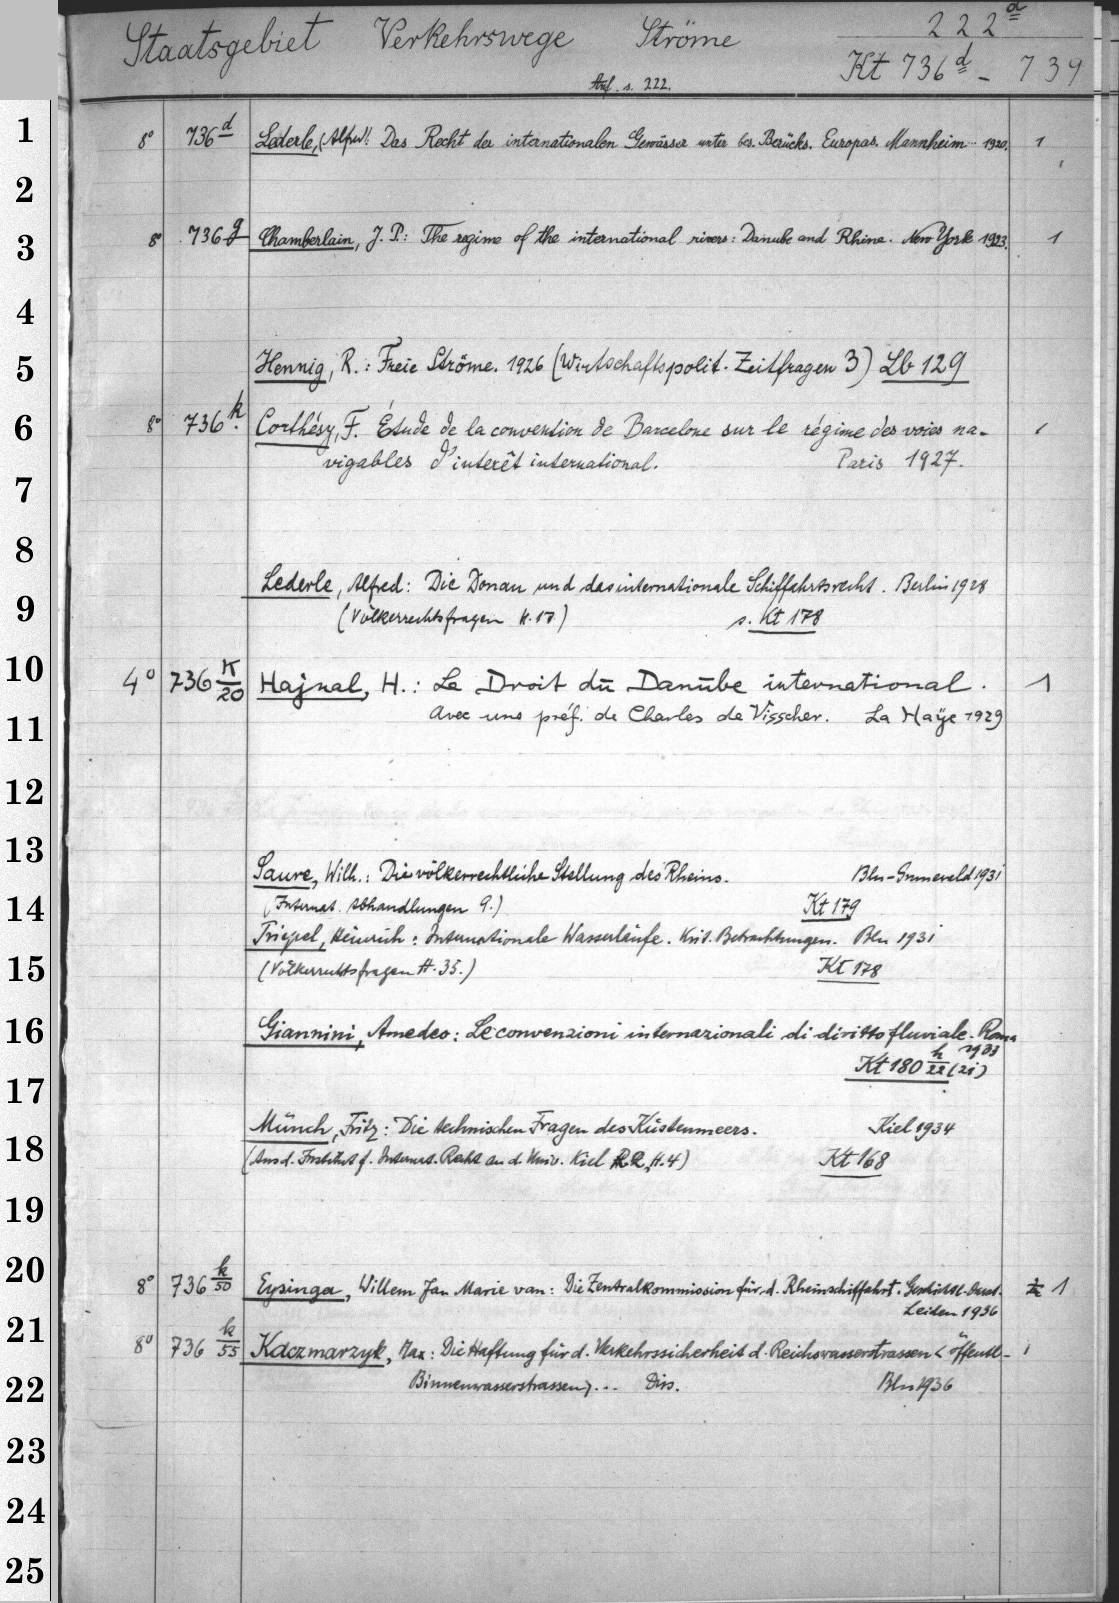 Staatsgebiet Verkehrswege Ströme 222d
Kt 736d - 739
Anf. s. 222.
1 8° 736d Lederle, (Alfred): Das Recht der internationalen Gewässer unter bes. Berücks. Europas. Mannheim 1920. 1
2
3 8° 736g Chamberlain, J. P.: The regime of the international rivers: Danube and Rhine. New York 1923. 1
4
5 Hennig, R.: Freie Ströme. 1926 (Wirtschaftspolit. Zeitfragen 3) Lb 129
6 8° 736k. Corthésy, F. Étude de la convention de Barcelone sur le régime des voies na- 1
vigables d'interêt international. Paris 1927.
7
8
Lederle, Alfred: Die Donau und das internationale Schiffahrtsrecht. Berlin 1928
9 (Völkerrechtsfragen H. 17) s. Kt 178
10 4° 736 K/20 Hajnal, H.: Le Droit du Danube international. 1
11 Avec une préf. de Charles de Visscher. La Haye 1929
12
13
Saure, Wilh.: Die völkerrechtliche Stellung des Rheins. Bln-Grunewald 1931
14 (Internat. Abhandlungen 9.) Kt 179
Triepel, Heinrich: Internationale Wasserläufe. Krit. Betrachtungen. Bln 1931
15 (Völkerrechtsfragen H. 35.) Kt 178
16 Giannini, Amedeo: Le convenzioni internazionali di diritto fluviale. Roma
1933
Kt 180 h/22 (21)
17
Münch, Fritz: Die technischen Fragen des Küstenmeers. Kiel 1934
18 (Aus d. Institut f. Internat. Recht an d. Univ. Kiel R 2, H. 4) Kt 168
19
20 8° 736 k/50 Eysinga, Willem Jan Marie van: Die Zentralkommission für d. Rheinschiffahrt. Geschichtl. Darst. 1
Leiden 1936
21 8° 736 k/55 Kaczmarzyk, Max: Die Haftung für d. Verkehrssicherheit d. Reichswasserstrassen < öffentl- 1
22 Binnenwasserstrassen>... Diss. Bln 1936
23
24
25